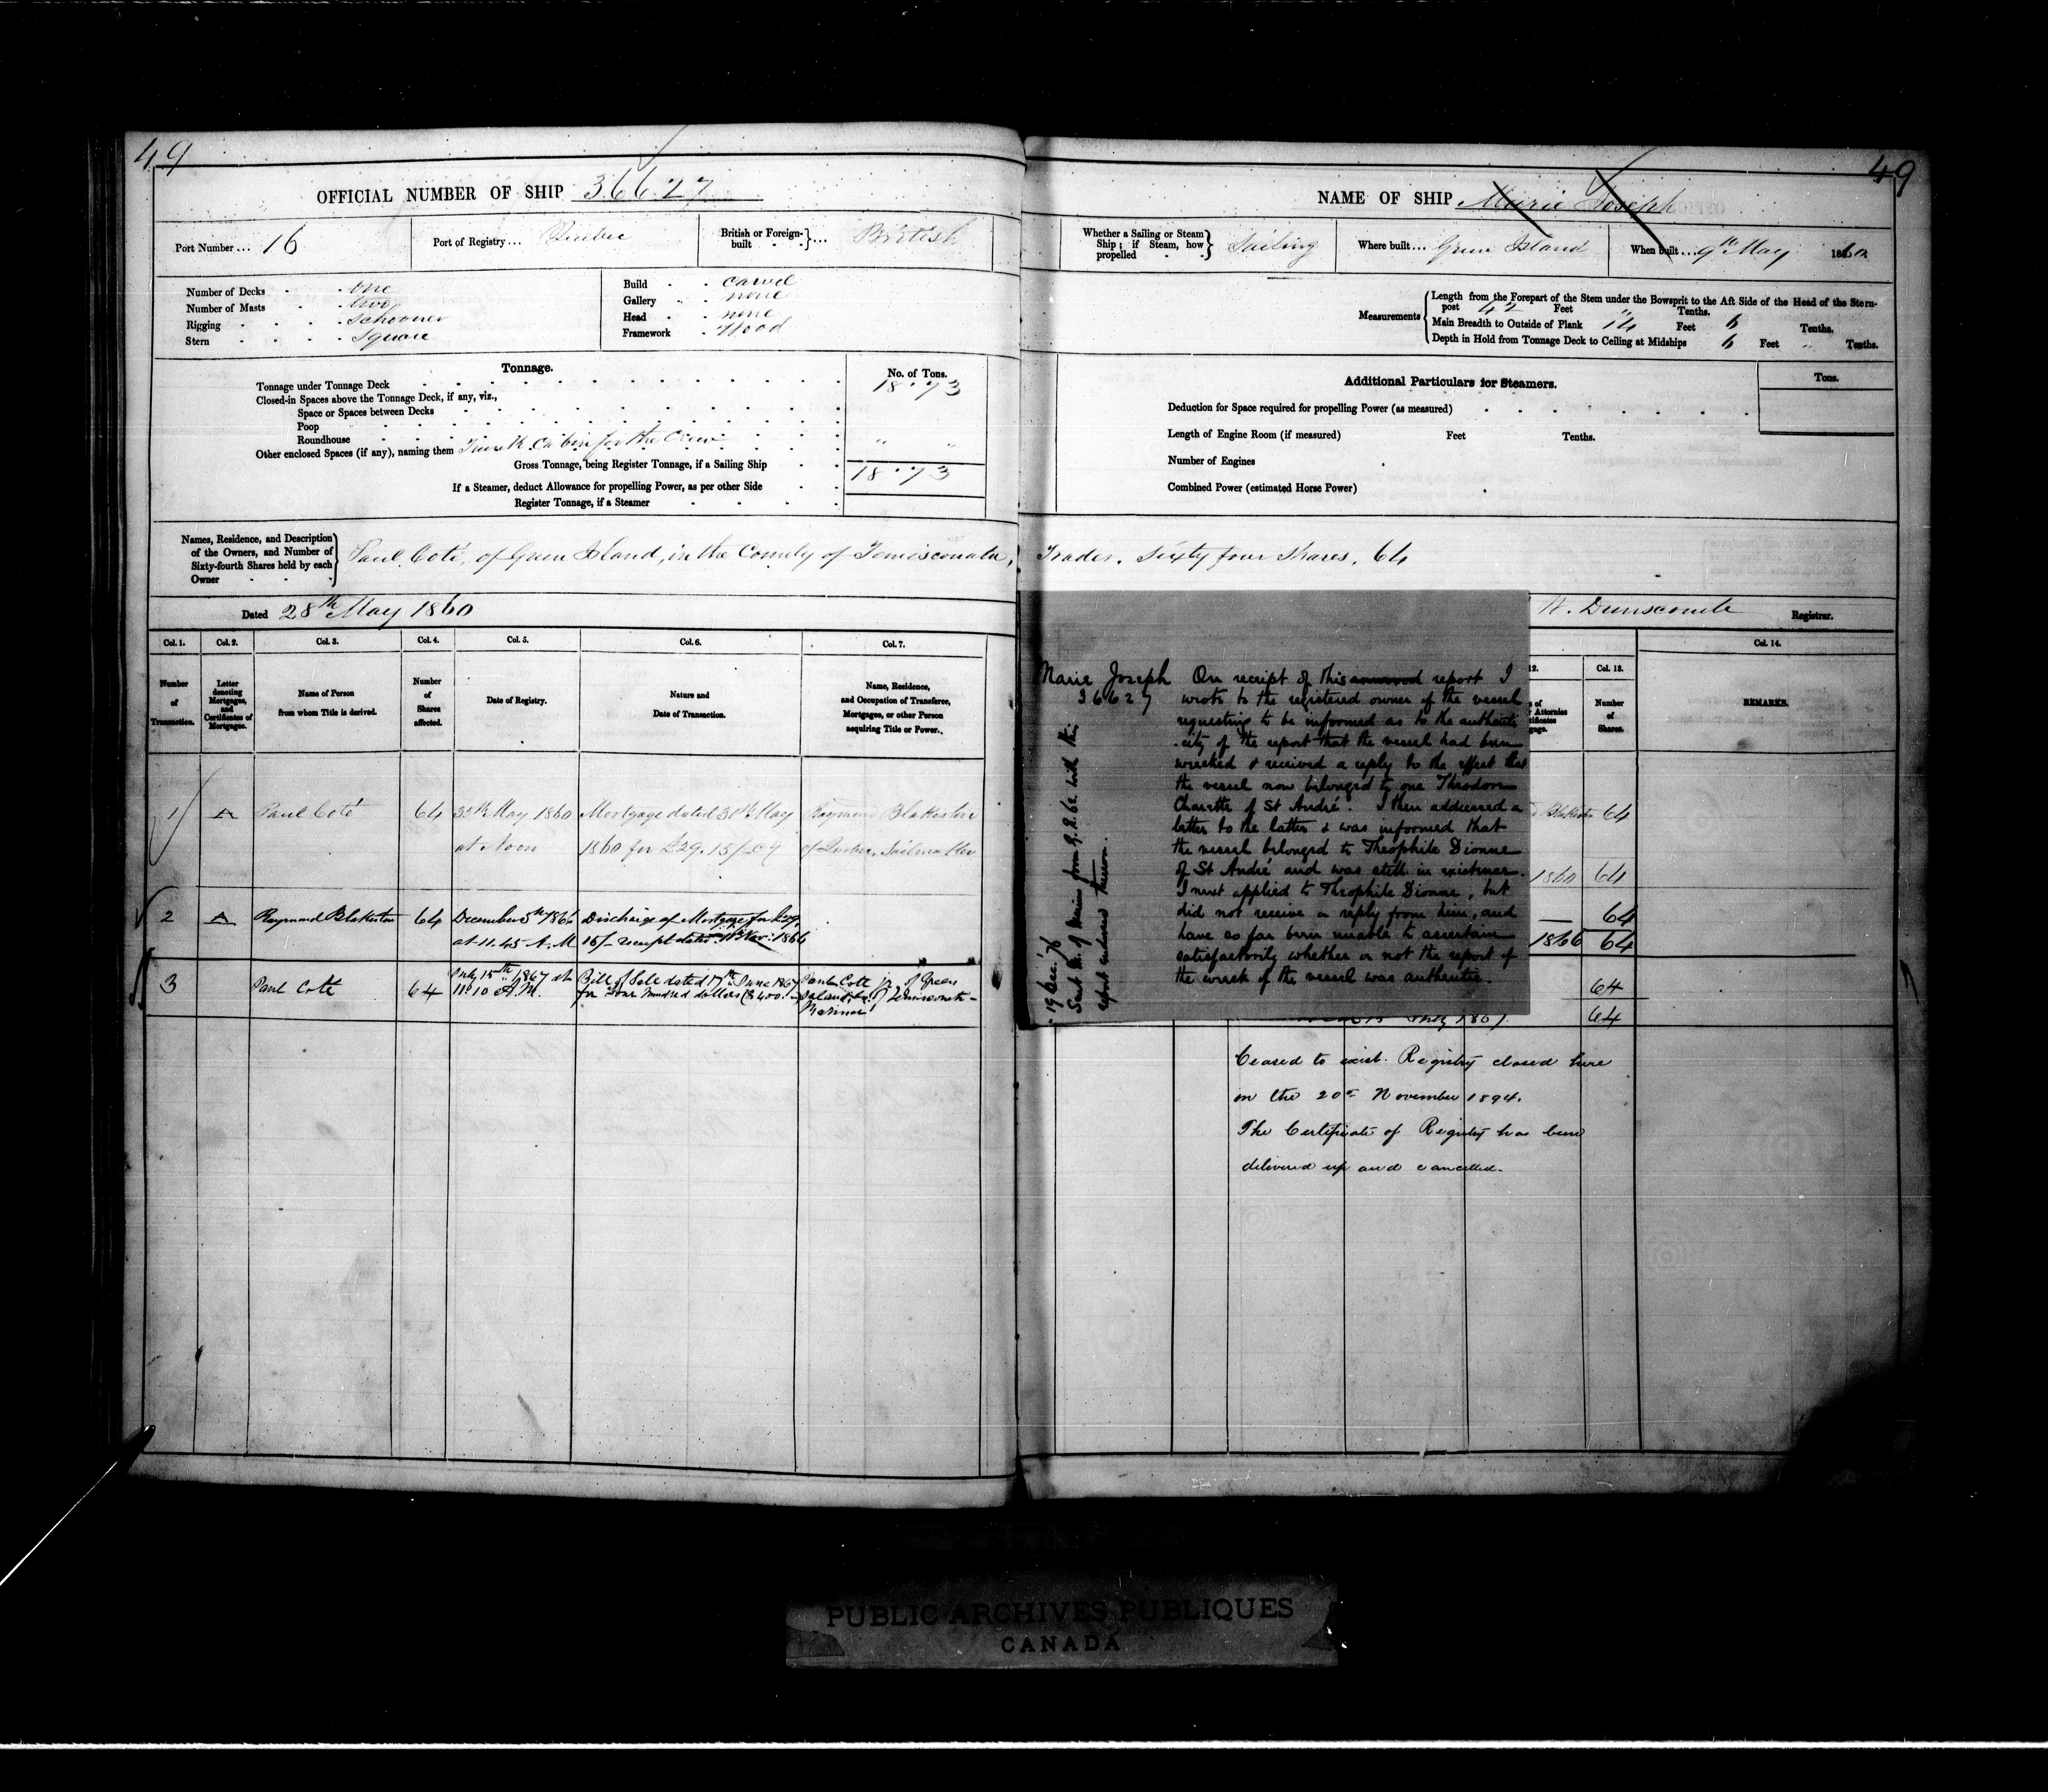 49
OFFICIAL NUMBER OF SHIP 36627
Port Number ... 16
Port of Registry ... Quebec
British or Foreign-built ... British
Number of Decks one
Number of Masts two
Rigging Schooner
Stern Square
Build Carvel
Gallery none
Head none
Framework Wood
Tonnage.
No. of Tons.
Tonnage under Tonnage Deck 18.73
Closed-in Spaces above the Tonnage Deck, if any, viz.,
Space or Spaces between Decks
Poop
Roundhouse
Other enclosed Spaces (if any), naming them cabin for the Crew " "
Gross Tonnage, being Register Tonnage, if a Sailing Ship 18.73
If a Steamer, deduct Allowance for propelling Power, as per other Side
Register Tonnage, if a Steamer
Names, Residence, and Description
of the Owners, and Number of
Sixty-fourth Shares held by each
Owner
Paul Coté, of Green Island, in the County of Temisconata,
Dated 28th May 1860
Col. 1. Col. 2. Col. 3. Col. 4. Col. 5. Col. 6. Col. 7.
Number of Transaction.
Letter denoting Mortgages, and Certificates of Mortgages.
Name of Person from whom Title is derived.
Number of Shares affected.
Date of Registry.
Nature and Date of Transaction.
Name, Residence, and Occupation of Transferee, Mortgagee, or other Person acquiring Title or Power.
1 A Paul Coté 64 30th May 1860 Mortgage dated 30th May Raymond Blakiston
at Noon 1860 for £29.15/- Cy of Quebec, Sailmaker
2 A Raymond Blakiston 64 December 5th 1866 Discharge of Mortgage for £29.
at 11.45 A.M 15/- receipt dated Nov: 1866
3 Paul Cote 64 July 15th 1867 at Bill of Sale dated 17th June 1867 Paul Cote jr. of Green
11.10 A.M. for four hundred dollars ($400. Island, Co. Temisconata
Mariner
49
NAME OF SHIP Marie Joseph
Whether a Sailing or Steam Ship; if Steam, how propelled Sailing
Where built ... Green Island
When built ... 9th May 1860
Measurements
Length from the Forepart of the Stem under the Bowsprit to the Aft Side of the Head of the Stern-
post 42 Feet " Tenths.
Main Breadth to Outside of Plank 14 Feet 6 Tenths.
Depth in Hold from Tonnage Deck to Ceiling at Midships 6 Feet " Tenths.
Additional Particulars for Steamers.
Tons.
Deduction for Space required for propelling Power (as measured)
Length of Engine Room (if measured) Feet Tenths.
Number of Engines
Combined Power (estimated Horse Power)
Trader. Sixty four Shares. 64
W. Dunscomb Registrar.
Marie Joseph
36627
On receipt of this report I
wrote to the registered owner of the vessel
requesting to be informed as to the authenti
-city of the report that the vessel had been
wrecked & received a reply to the effect that
the vessel now belonged to one Theodore
Charette of St André. I then addressed a
letter to the latter & was informed that
the vessel belonged to Theophile Dionne
of St André and was still in existence.
I next applied to Theophile Dionne, but
did not receive a reply from him, and
have so far been unable to ascertain
satisfactorily whether or not the report of
the wreck of the vessel was authentic.
19 Dec. '76
report enclosed thereon.
12. Col. 13. Col. 14.
Number of Shares.
REMARKS.
64
1860 64
64
1866 64
64
64
Ceased to exist. Registry closed here
on the 20th November 1894.
The Certificate of Registry has been
delivered up and cancelled.
PUBLIC ARCHIVES PUBLIQUES
CANADA